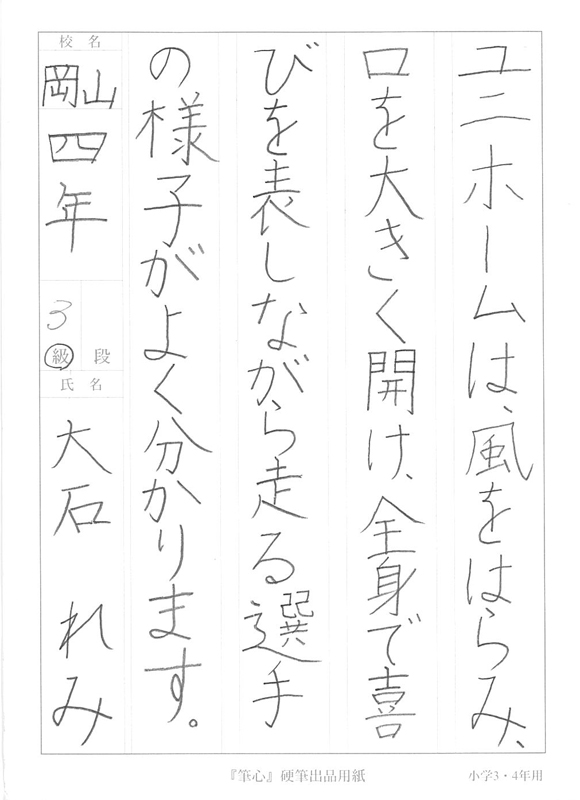 ユニホームは、風をはらみ、
口を大きく開け、全身で喜
びを表しながら走る選手
の様子がよく分かります。
校名
岡山
四年
3
級 段
氏名
大石 れみ
『筆心』硬筆出品用紙
小学3・4年用